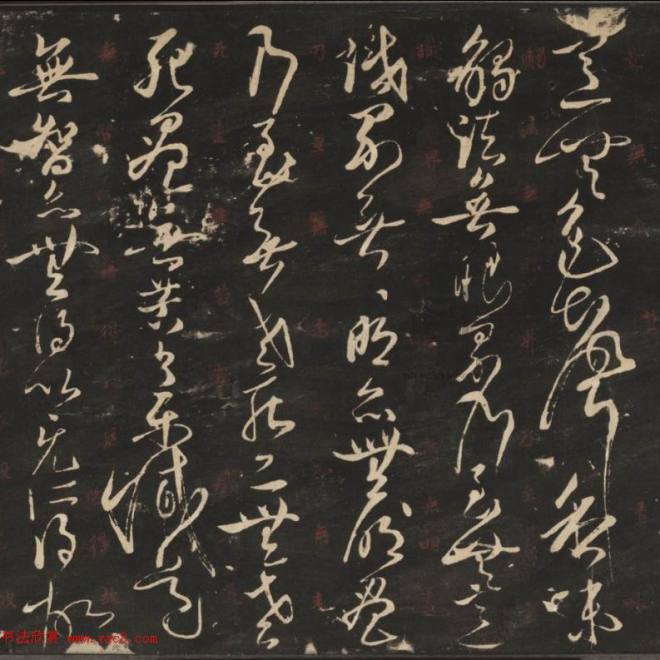 意無色聲香味
觸法無眼界乃至無意
識界無〻明亦無明盡
乃至無老死亦無老
死盡無苦集滅道
無智亦無得以無所得故
书法欣赏 www.yac8.com